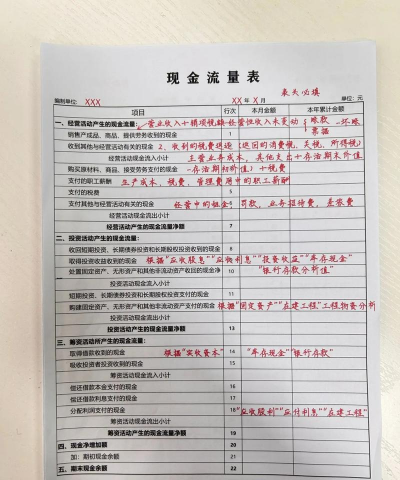 现金流量表
表头必填
编制单位: XXX XX 年 X 月 单位: 元
项目 行次 本月金额 本年累计金额
一、经营活动产生的现金流量: 营业收入+销项税额-经营性收入未变动 账款 -坏账
票据
销售产成品、商品、提供劳务收到的现金 1
收到其他与经营活动有关的现金 2、收到的税费返还(返回的消费税、关税、所得税)
经营活动现金流入小计 主营业务成本, 其他支出+存活期末价值
购买原材料、商品、接受劳务支付的现金 -存活期初价值)+税费
支付的职工薪酬 生产成本, 税费, 管理费用中的职工薪酬
支付的税费 5
支付其他与经营活动有关的现金 经营中的租金, 罚款, 业务招待费, 差旅费
经营活动现金流出小计
经营活动产生的现金流量净额 7
二、投资活动产生的现金流量:
收回短期投资、长期债券投资和长期股权投资收到的现金 8
取得投资收益收到的现金 根据"应收股息""应付利息""投资收益""库存现金"
处置固定资产、无形资产和其他非流动资产收回的现金净 10 "银行存款分析值"
投资活动现金流入小计
短期投资、长期债券投资和长期股权支付的现金 11
购建固定资产、无形资产和其他非流动资产支付的现金 根据"固定资产""在建工程"工程物资分析
投资活动现金流出小计
投资活动产生的现金流量净额 13
三、筹资活动所产生的现金流量:
取得借款收到的现金 根据"实收资本" 14 "库存现金""银行存款"
吸收投资者投资收到的现金 15
筹资活动现金流入小计
偿还借款本金支付的现金 16
偿还借款利息支付的现金 17
分配利润支付的现金 18 "应收股利""应付利息""在建工程"
筹资活动现金流出小计
筹资活动产生的现金流量净额 19
四、现金净增加额 20
加: 期初现金余额 21
五、期末现金余额 22